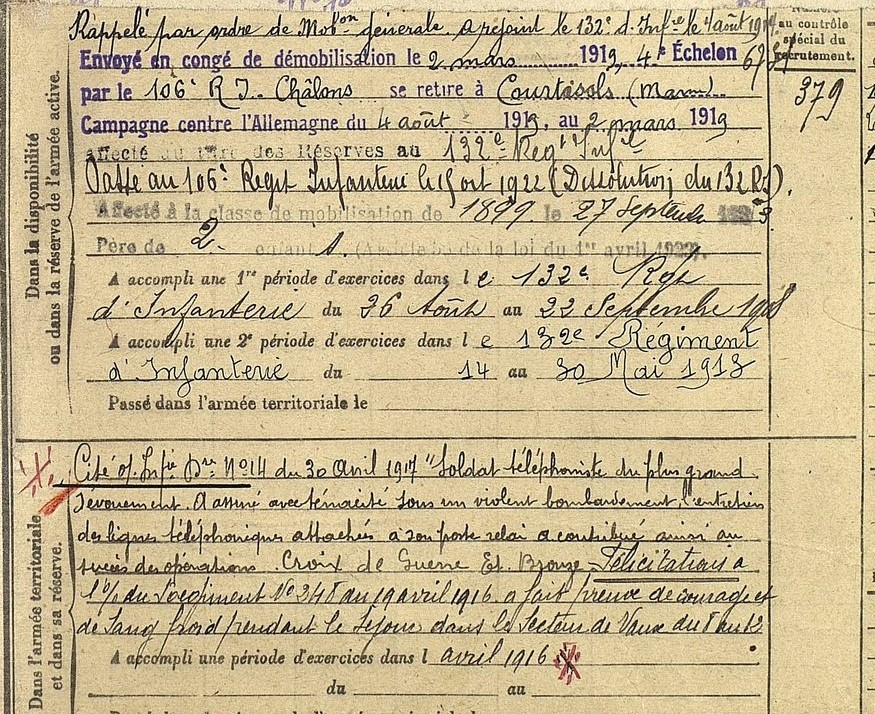 Rappelé par ordre de Mob^on générale a rejoint le 132e d'Inf^ie le 4 août 1914.
Envoyé en congé de démobilisation le 2 mars 1919, 4e Échelon
par le 106e R I. Châlons se retire à Courtisols (Marne)
Campagne contre l'Allemagne du 4 août 191 , au 2 mars 1919
Affecté au des Réserves au 132e Reg^t Inf^ie
Passé au 106e Regt Infanterie le 1922 (Dissolution du 132 RI).
Affecté à la classe de mobilisation de 1899 le 27 Septembre
Père de 2 enfants. (Article de la loi du 1er avril 1923).
A accompli une 1re période d'exercices dans le 132e Regt
d'Infanterie du 26 Août au 22 Septembre 1908
A accompli une 2e période d'exercices dans le 132e Régiment
d'Infanterie du 14 au 30 Mai 1913
Passé dans l'armée territoriale le
Dans la disponibilité
ou dans la réserve de l'armée active.
Numéro
au contrôle
spécial du
recrutement.
379
Cité O. Inf^ie D^re No 14 du 30 Avril 1917 "Soldat téléphoniste du plus grand
dévouement. A assuré avec ténacité sous un violent bombardement, l'entretien
des lignes téléphoniques attachées à son poste relai a contribué ainsi au
succès des opérations. Croix de Guerre Et. Bronze. Félicitations à
l' du Régiment No 248 du 19 avril 1916 a fait preuve de courage et
de Sang froid pendant le Séjour dans le Secteur de Vaux du 8 au 12
avril 1916
A accompli une période d'exercices dans l
du au
Dans l'armée territoriale
et dans sa réserve.